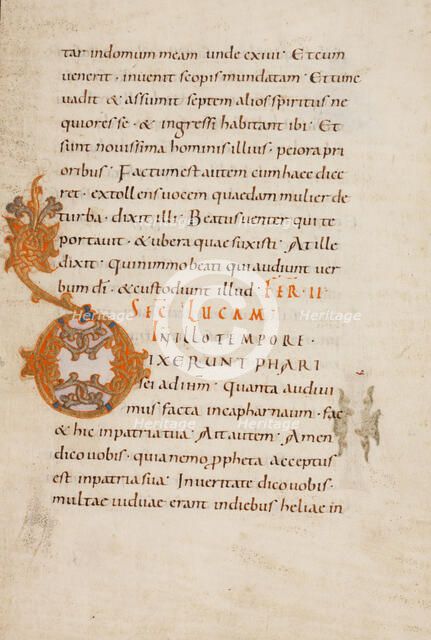 tar indomum meam unde exivi · Et cum
venerit · invenit scopis mundatam · Et tunc
vadit & assumit septem alios spiritus ne
quiores se · & ingressi habitant ibi · Et
sunt novissima hominis illius · peiora pri
oribus · Factum est autem cum haec dice
ret · extollens vocem quaedam mulier de
turba · dixit illi · Beatus venter qui te
portavit · & ubera quae suxisti · At ille
dixit · Quinimmo beati qui audiunt ver
bum di · & custodiunt illud · FER · II ·
SEC LUCAM
IN ILLO TEMPORE ·
DIXERUNT PHARI
sei ad ihm · Quanta audivi
mus facta incapharnaum · fac
& hic inpatria tua · Ait autem · Amen
dico vobis · quia nemo propheta acceptus
est inpatria sua · In veritate dico vobis ·
multae viduae erant indiebus heliae in
heritage
Heritage
Heritage
Heritage
Heritage
Heritage